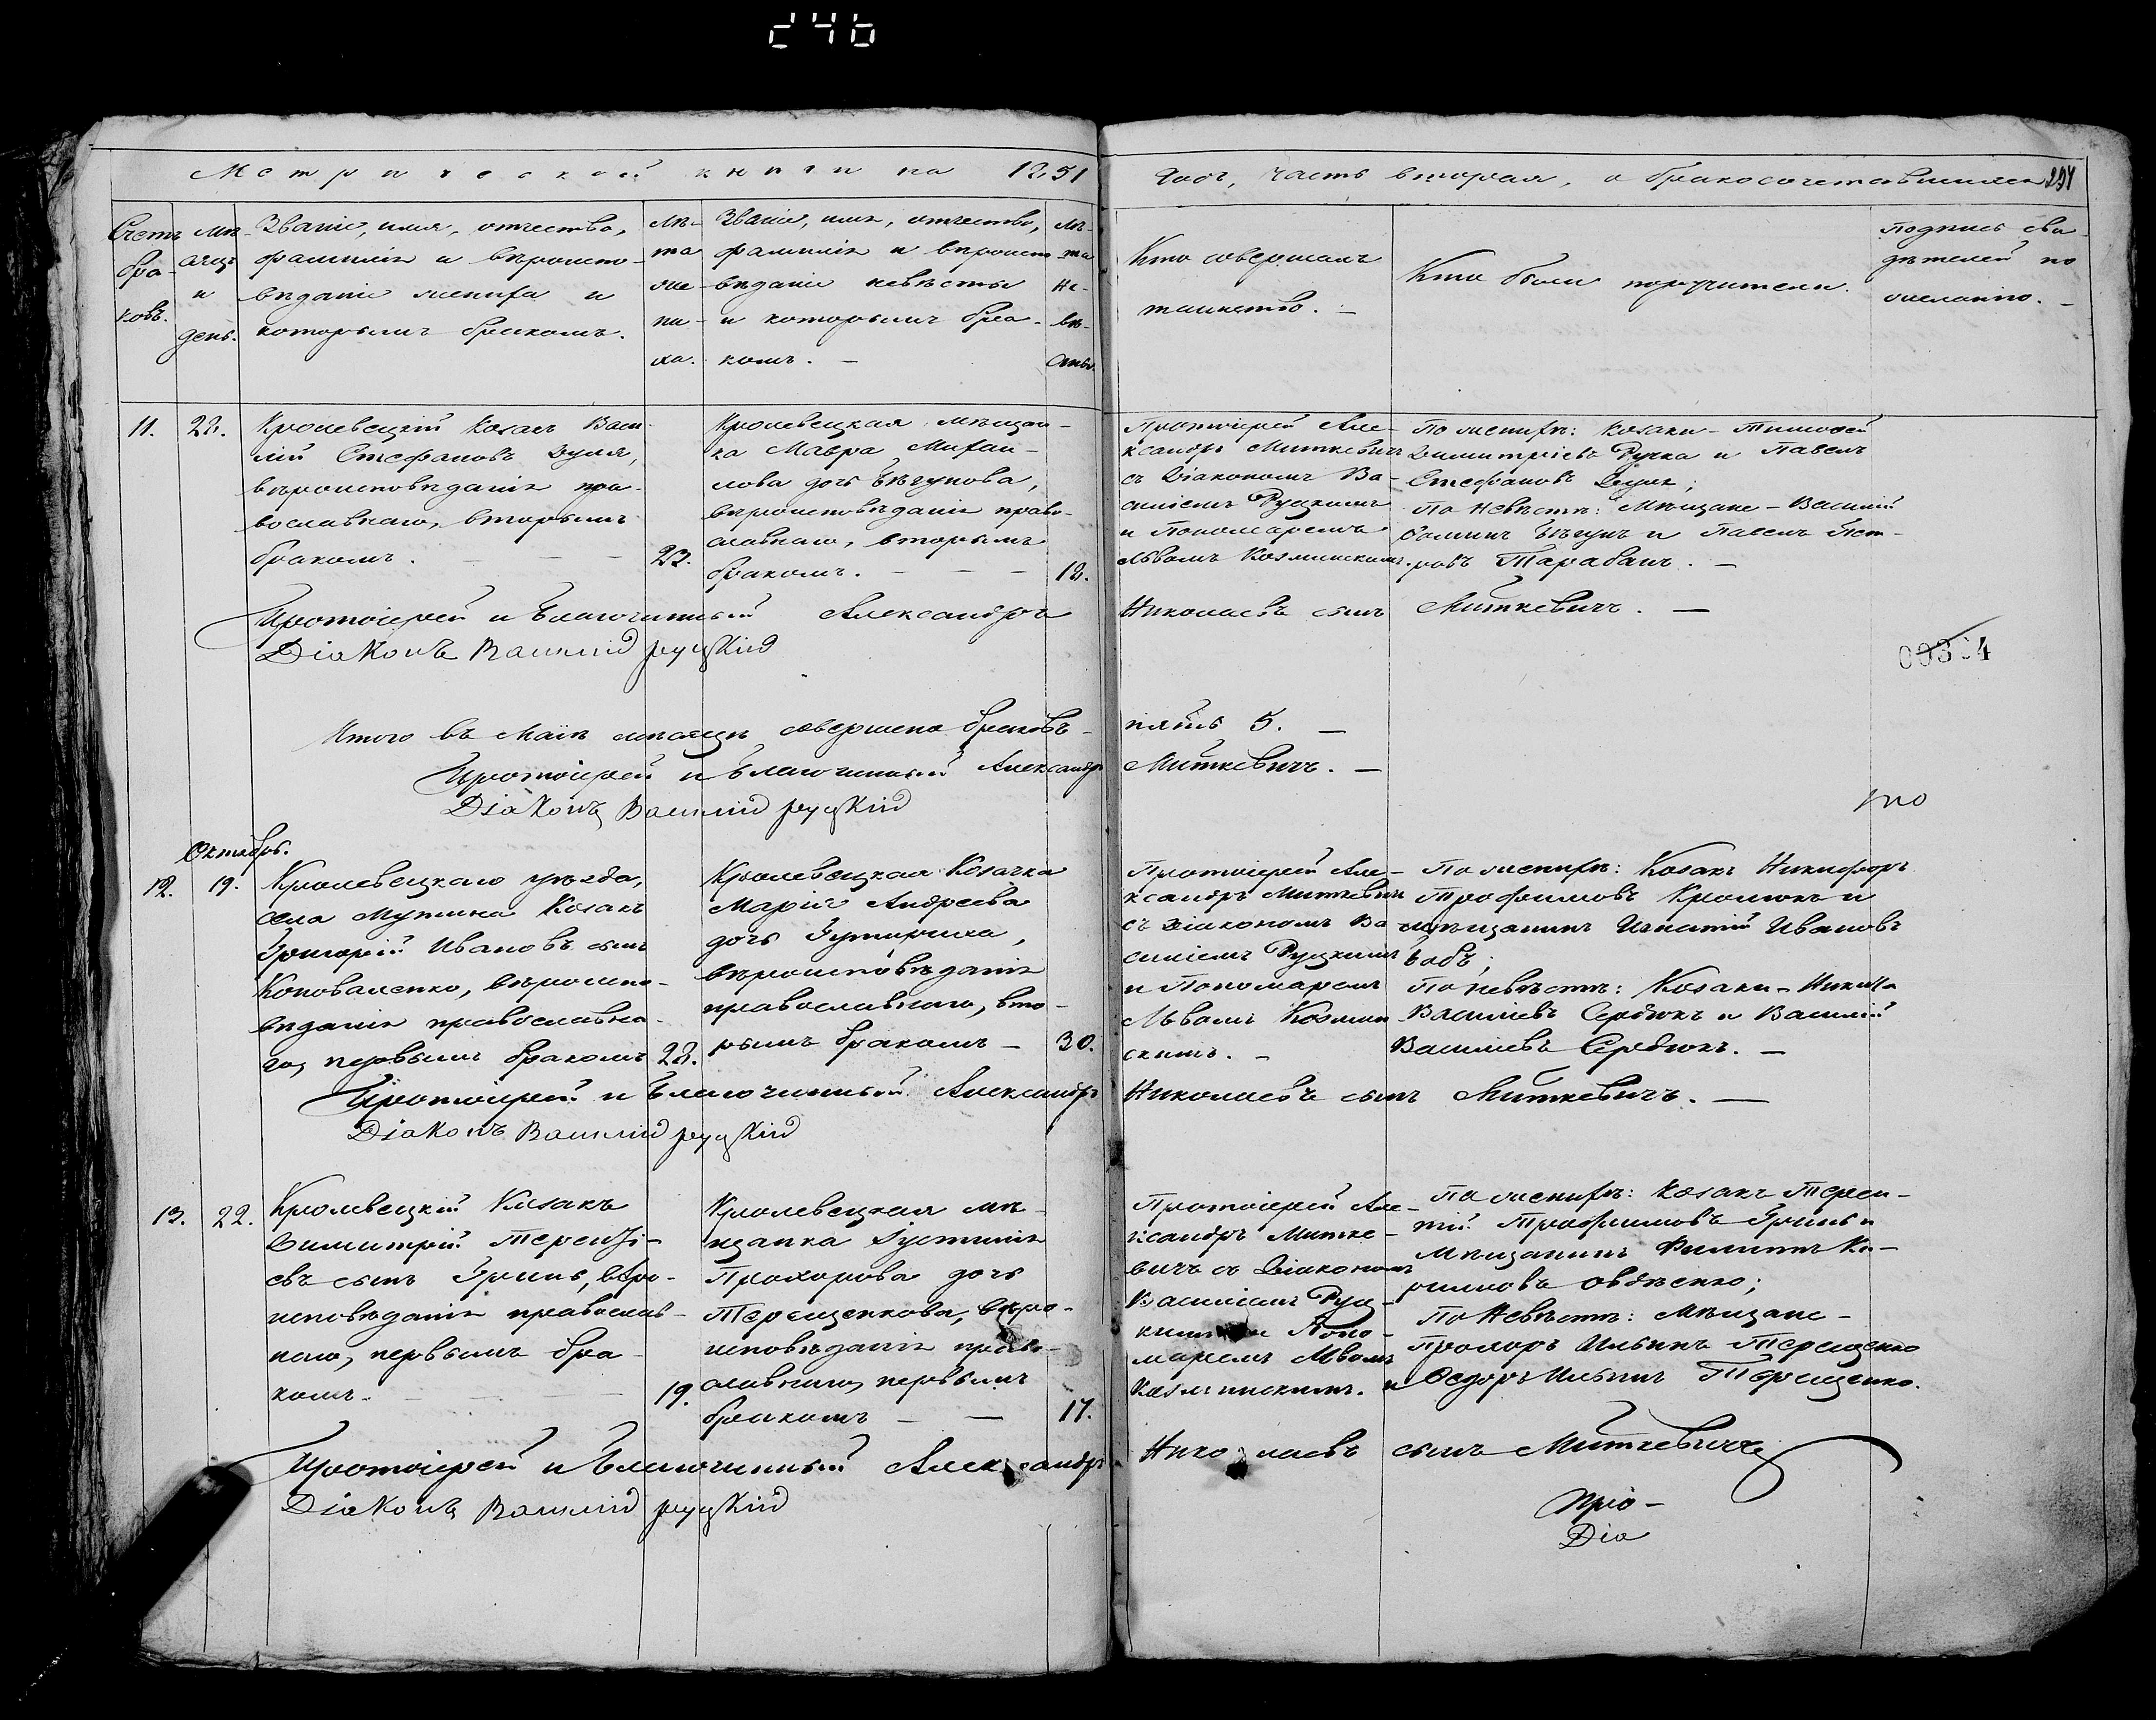 246
Метрической книги на 1851
Годъ, часть вторая, о бракосочетавшихся
Счетъ браковъ.
Мѣсяцъ и день.
Званіе, имя, отчество,
фамилія и вѣроиспо-
вѣданіе жениха и
которымъ бракомъ.
Лѣ-
та
же-
ни-
ха.
Званіе, имя, отчество,
фамилія и вѣроиспо-
вѣданіе невѣсты
и которымъ бра-
комъ. —
Лѣ-
та
не-
вѣ-
сты.
Кто совершалъ
таинство. —
Кто были поручители.
Подпись сви-
дѣтелей по
желанію. —
11.
Кролевецкій Козакъ Васи-
лій Стефановъ Дуля,
вѣроисповѣданія пра-
вославнаго, вторымъ
бракомъ. — — —
23.
Кролевецкая мѣщан-
ка Мавра Михаи-
лова дочь Бѣгунова,
вѣроисповѣданія право-
славнаго, вторымъ
бракомъ. — — —
18.
Протоіерей Але-
ксандръ Миткевичъ
съ Діакономъ Ва-
силіемъ Руцкимъ
и Пономаремъ
Львомъ Козминскимъ.
По женихѣ: Козаки - Тимофей
Димитріевъ Ручка и Павелъ
Стефановъ Дуля;
По невѣстѣ: Мѣщане - Василій
Бѣгунъ и Павелъ Пет-
ровъ Тарабанъ. —
Протоіерей и Благочинный Александръ Николаевъ сынъ Миткевичъ. —
Діаконъ Василій Руцкій
Итого въ Маіѣ мѣсяцѣ совершено браковъ - пять 5. —
Протоіерей и Благочинный Александръ Миткевичъ. —
Діаконъ Василій Руцкій
Октябрь.
12.
19.
Кролевецкаго уѣзда,
села Мутина Козакъ
Григорій Ивановъ сынъ
Коноваленко, вѣроиспо-
вѣданія православна-
го, первымъ бракомъ
28.
Кролевецкая Козачка
Марія Андреева
дочь
вѣроисповѣданія
православнаго, вто-
рымъ бракомъ —
30.
Протоіерей Але-
ксандръ Миткевичъ
съ Діакономъ Ва-
силіемъ Руцкимъ
и Пономаремъ
Львомъ Козмин-
скимъ. —
По женихѣ: Козакъ Никифоръ
Трофимовъ и
мѣщанинъ Игнатій Ивановъ
Бабъ;
По невѣстѣ: Козаки - Никита
Василіевъ Сердюкъ и Василій
Василіевъ Сердюкъ. —
Протоіерей и Благочинный Александръ Николаевъ сынъ Миткевичъ. —
Діаконъ Василій Руцкій
13.
22.
Кролевецкій Козакъ
Димитрій Теренті-
евъ сынъ Гринь, вѣро-
исповѣданія православ-
наго, первымъ бра-
комъ. — —
19.
Кролевецкая мѣ-
щанка Іустинія
Прохорова дочь
Терещенкова, вѣро-
исповѣданія право-
славнаго, первымъ
бракомъ — —
17.
Протоіерей Але-
ксандръ Митке-
вичъ съ Діакономъ
Василіемъ Руц-
кимъ и Поно-
маремъ Львомъ
Козминскимъ.
По женихѣ: Козакъ Терен-
тій Трофимовъ Гринь и
Мѣщанинъ Филиппъ Ки-
рилловъ Овдѣенко;
По Невѣстѣ: Мѣщане -
Прохоръ Ильинъ Терещенко
и Ѳедоръ Ильинъ Терещенко.
Протоіерей и Благочинный Александръ Николаевъ сынъ Миткевичъ
Діаконъ Василій Руцкій
Діа